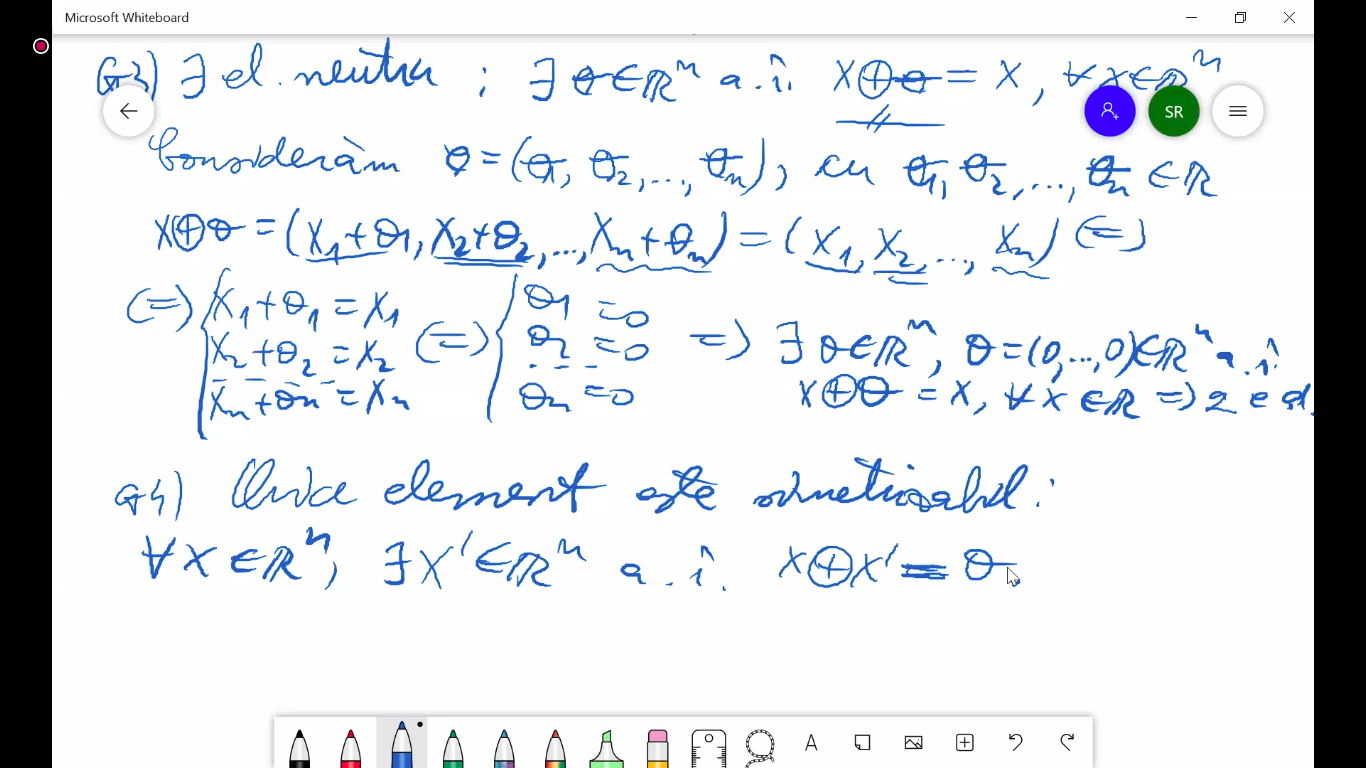 Microsoft Whiteboard
G3) ∃ el. neutru : ∃ θ∈ℝⁿ a.î. x⊕θ = x, ∀x∈ℝⁿ
SR
Considerăm θ=(θ₁, θ₂,..., θₙ), cu θ₁, θ₂,..., θₙ ∈ℝ
x⊕θ = (x₁+θ₁, x₂+θ₂,..., xₙ+θₙ) = (x₁, x₂,..., xₙ) (=)
(=) { x₁+θ₁ = x₁ (=) { θ₁ =0
x₂+θ₂ = x₂ θ₂ =0 =) ∃ θ∈ℝⁿ, θ=(0,...,0)∈ℝⁿ a.î.
xₙ+θₙ = xₙ θₙ =0 x⊕θ = x, ∀x∈ℝ =)
G4) Orice element este simetrizabil :
∀x∈ℝⁿ, ∃x'∈ℝⁿ a.î. x⊕x' = θ
A